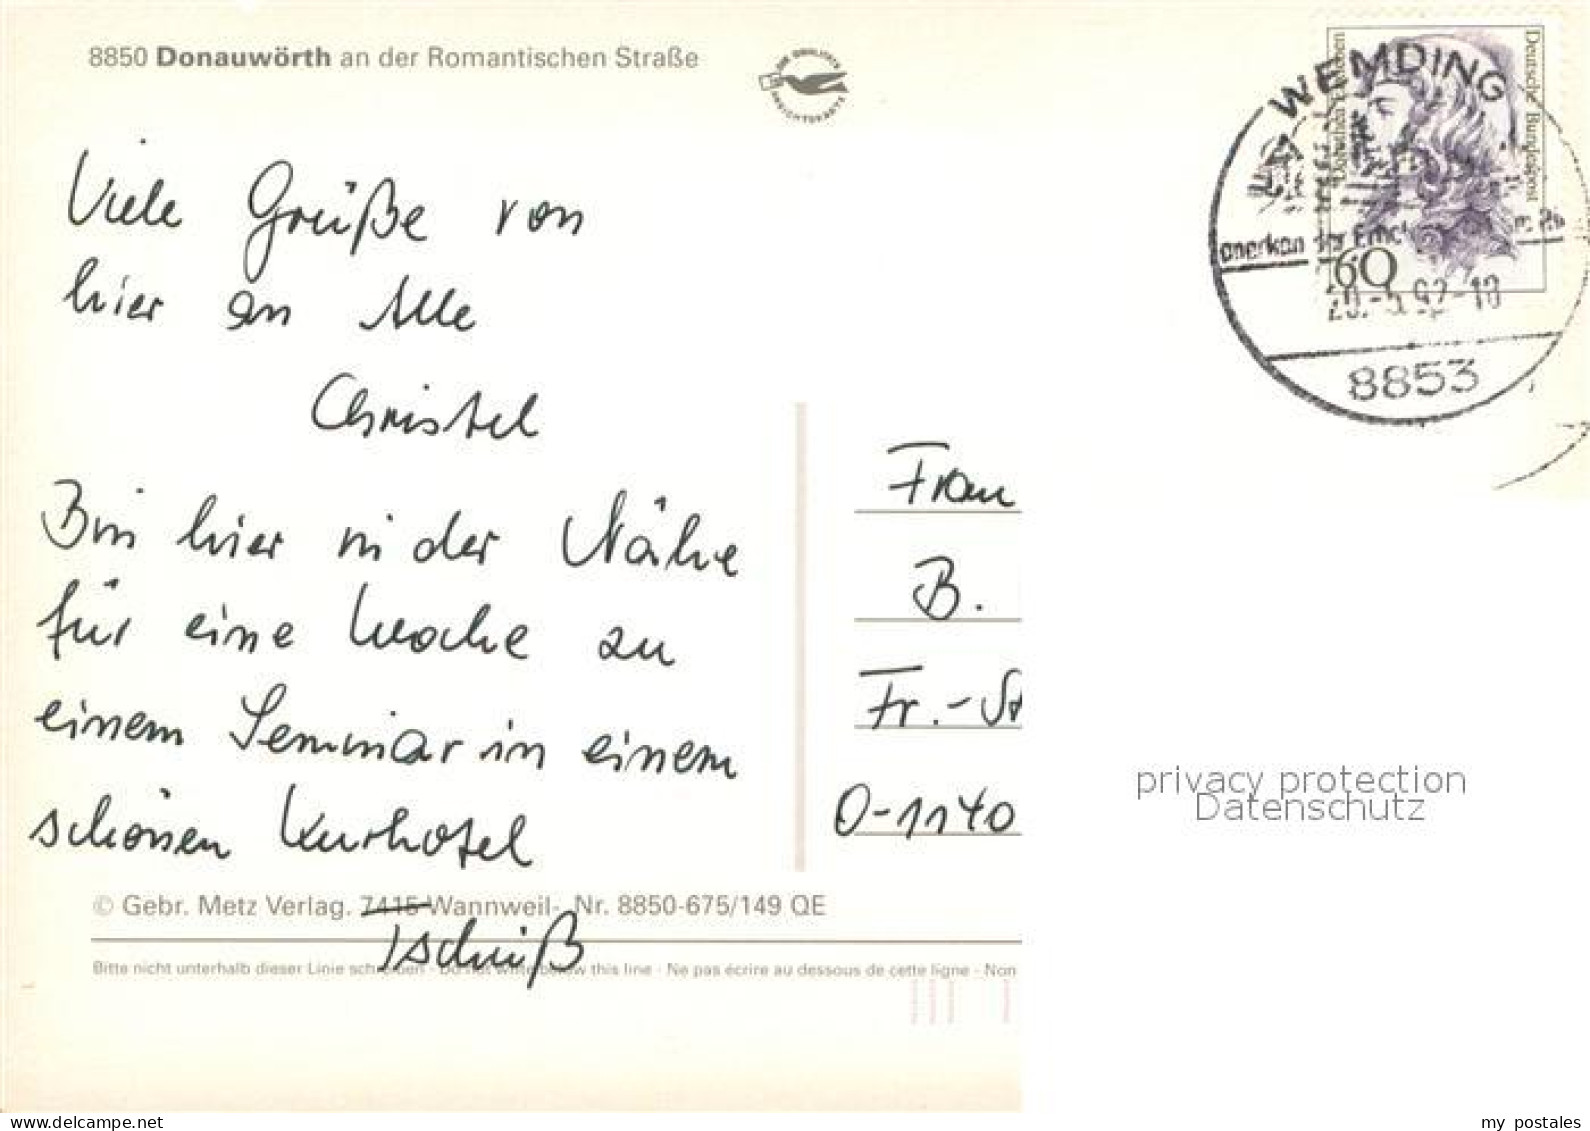 8850 Donauwörth an der Romantischen Straße
Viele Grüße von
hier an Alle
Christel
Bin hier in der Nähe
für eine Woche zu
einem Seminar in einem
schönen Kurhotel
Tschüß
© Gebr. Metz Verlag. 7415 Wannweil- Nr. 8850-675/149 QE
Bitte nicht unterhalb dieser Linie schreiben - Do not write below this line - Ne pas écrire au dessous de cette ligne - Non
WEMDING
Deutsche Bundespost
60
8853
Frau
B.
Fr.-St
O-1140
privacy protection
Datenschutz
www.ansichtskartenversand.com
my postales